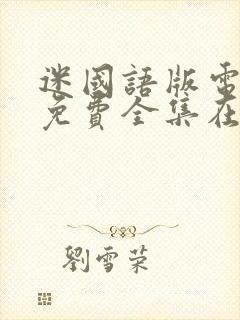 迷國語版電
免費全集在
劉雪榮